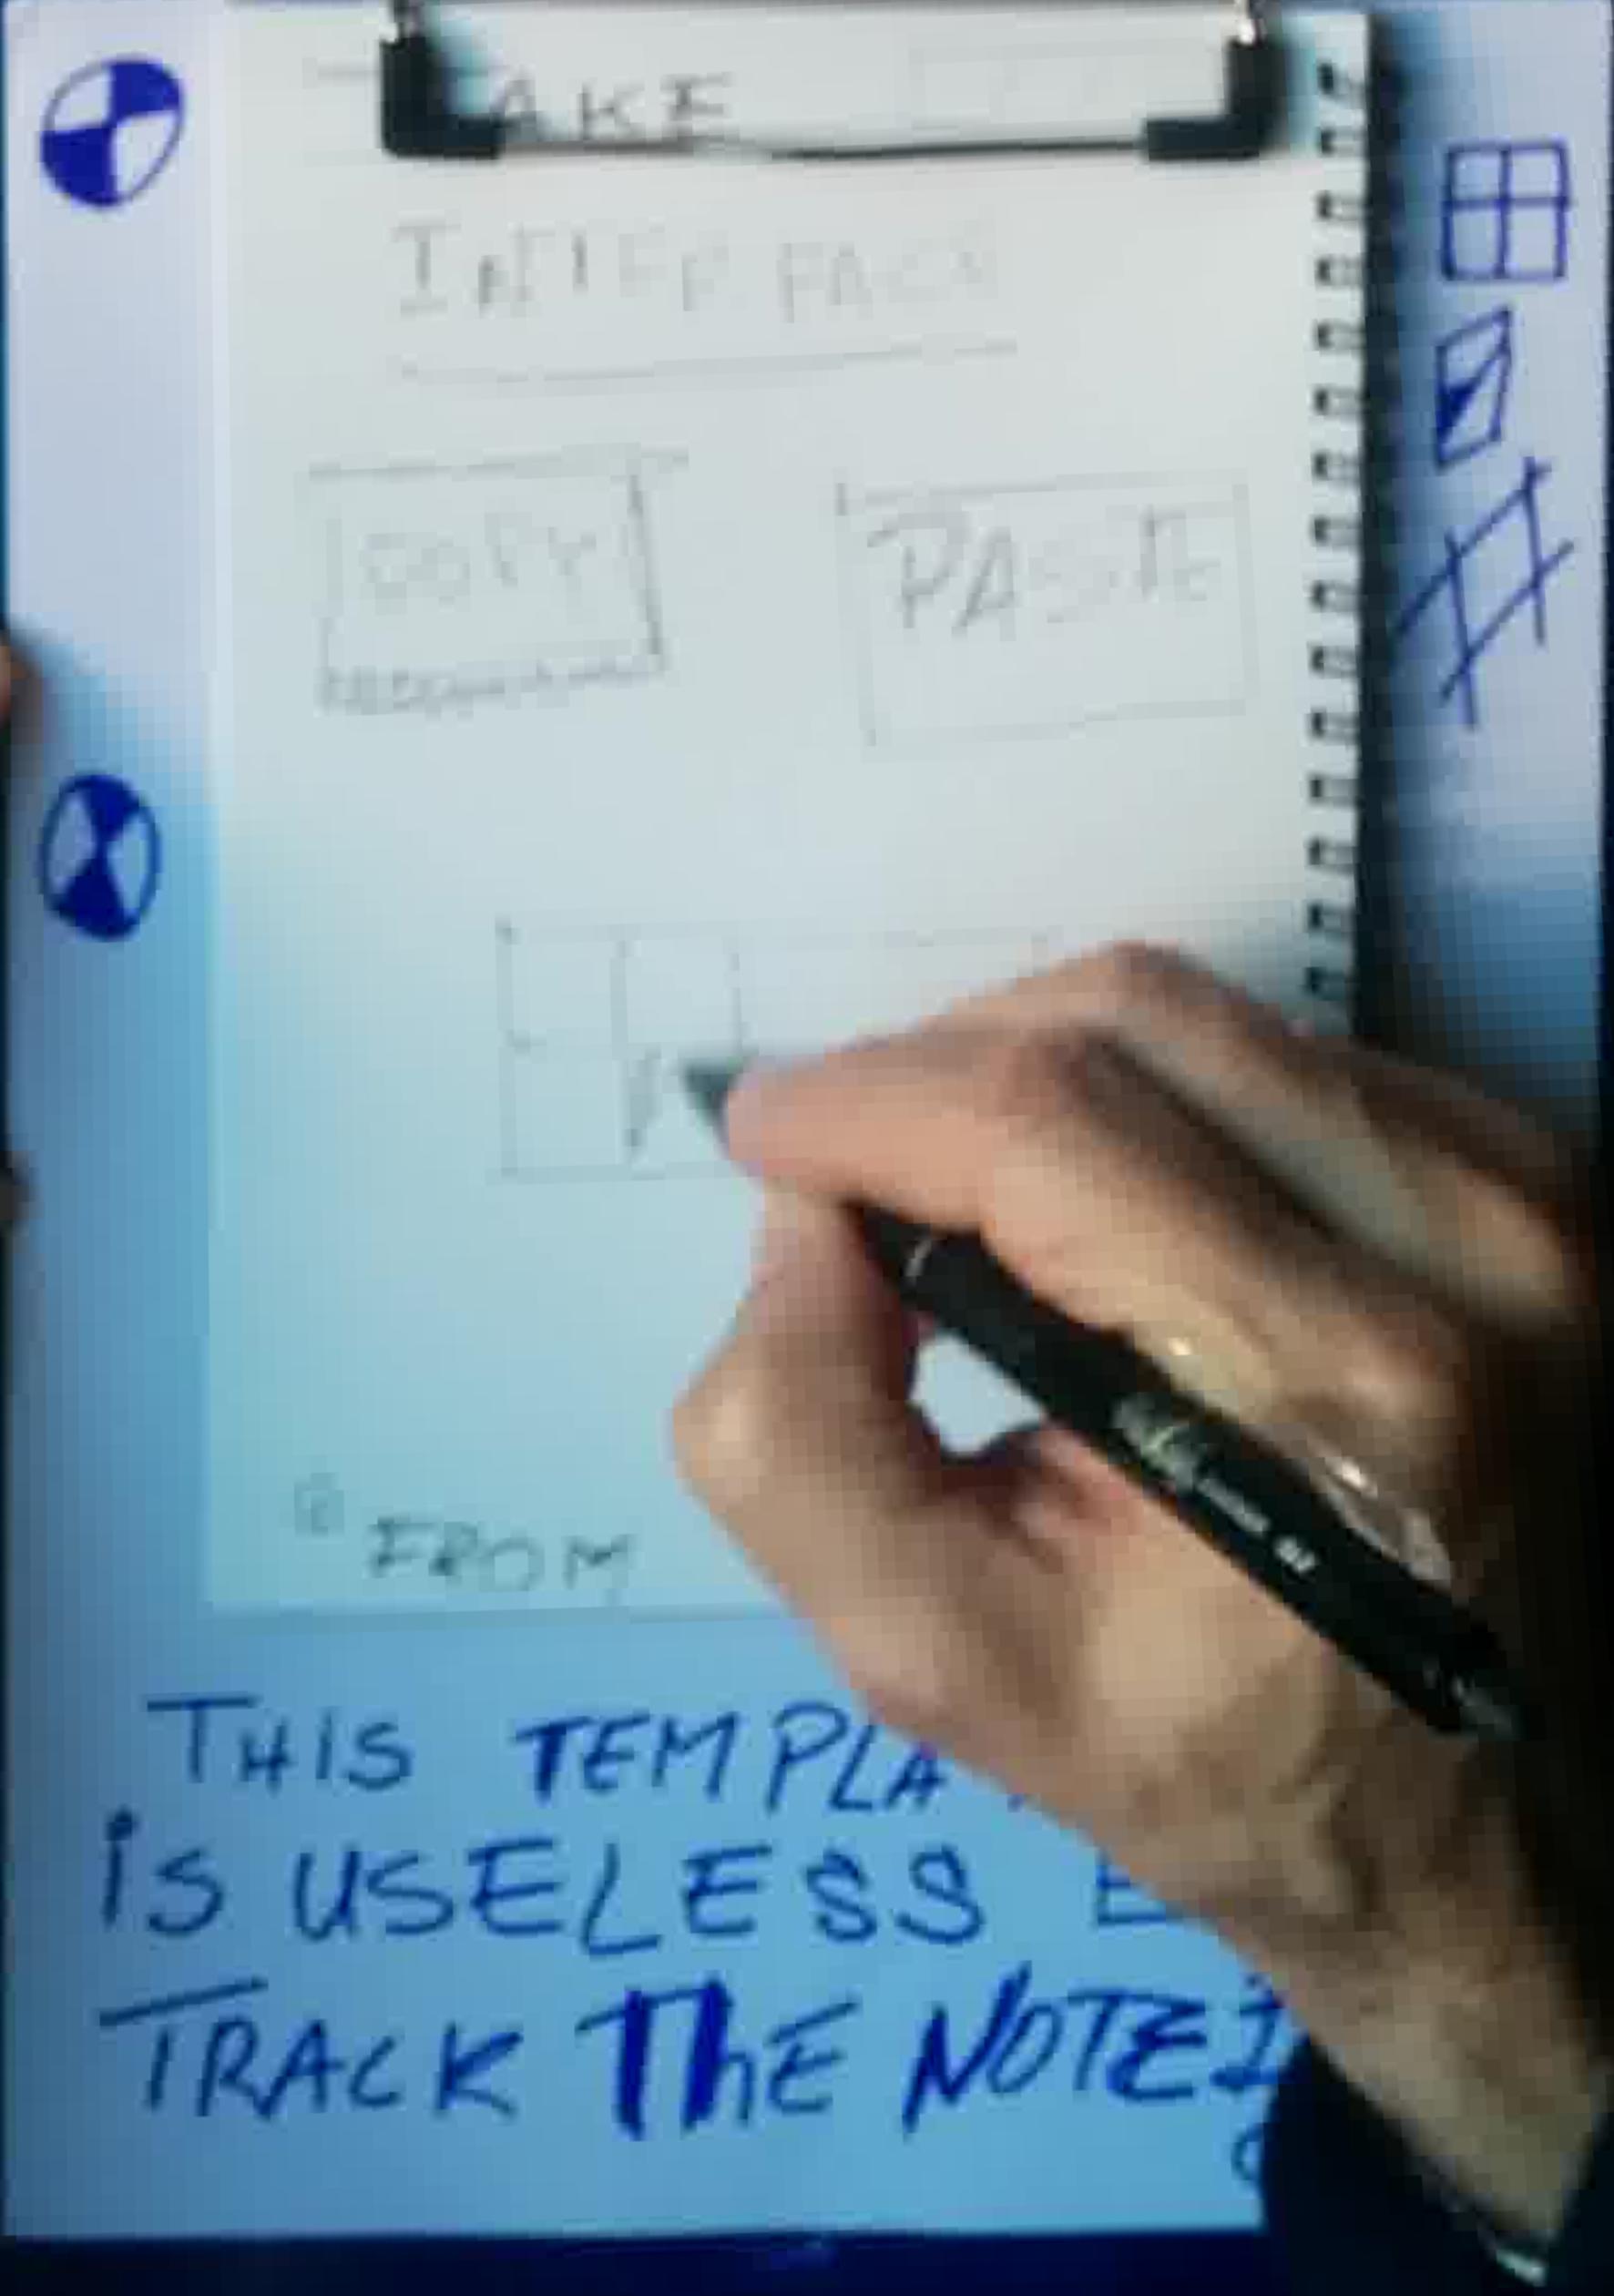 AKE
INTERFACE
COPY
PASTE
FROM
THIS TEMPLA
iS USELESS E
TRACK ThE NOTE